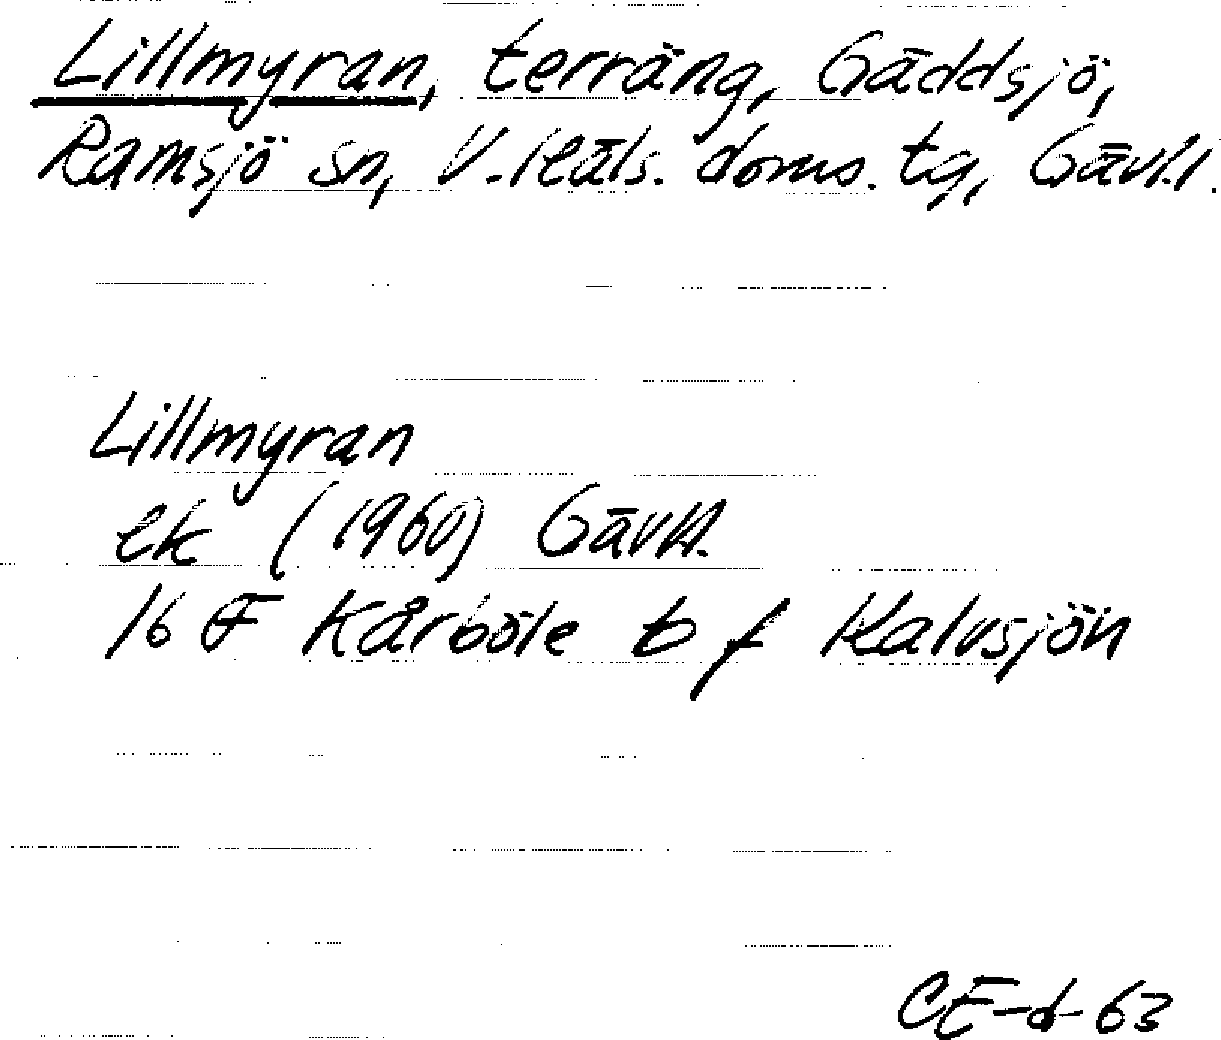 Lillmyran, terräng, Gäddsjö,
Ramsjö sn, V. Häls. doms. tg, Gävl.l.
Lillmyran
ek (1960) Gävl.l.
16 F Kårböle b f Kalvsjön
CE-d-63